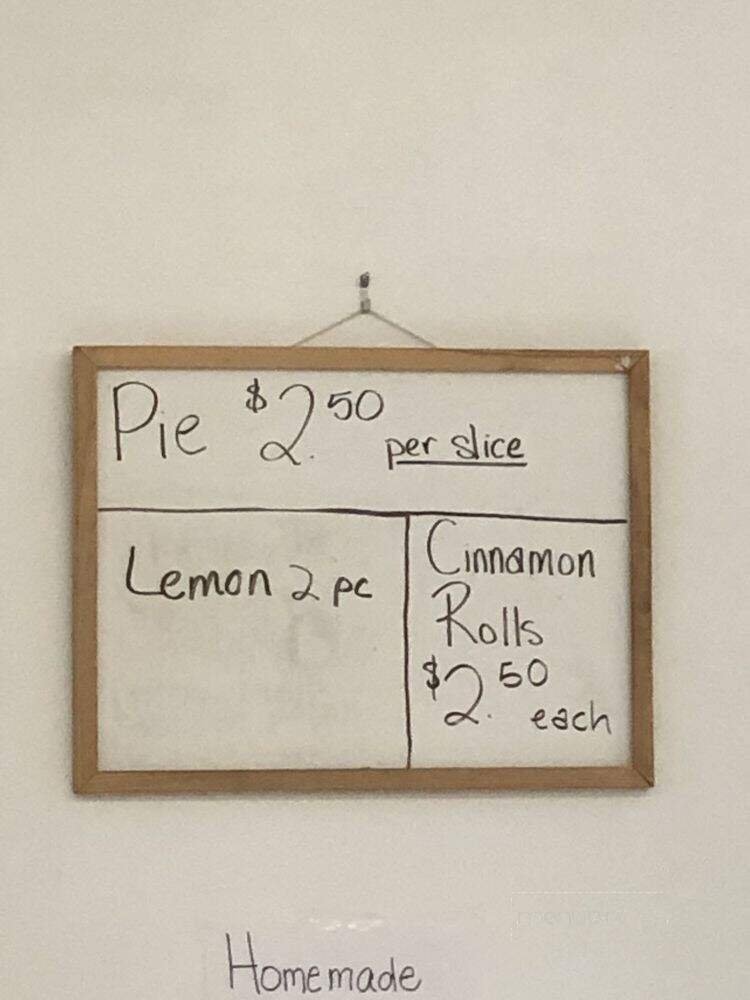 Pie $2.50 per slice
Lemon 2 pc
Cinnamon
Rolls
$2.50 each
Homemade